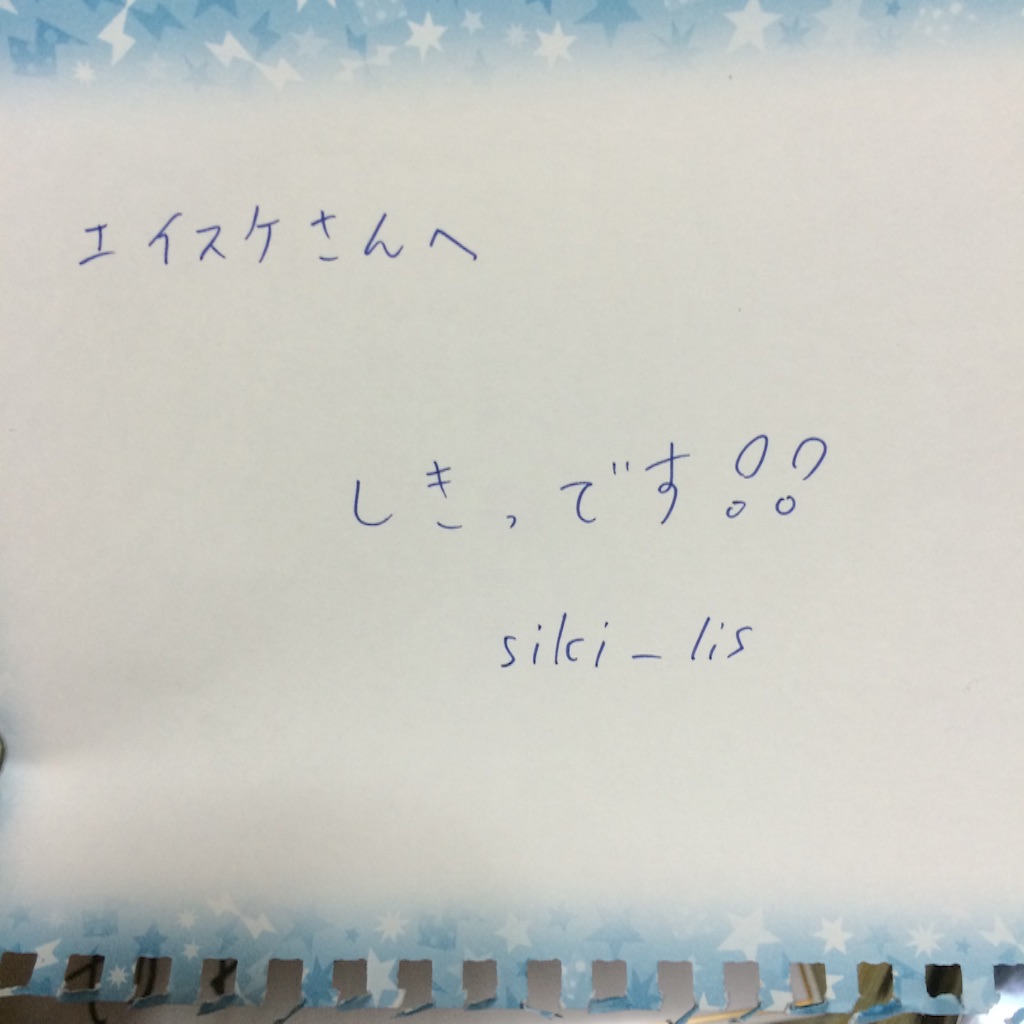 エイスケさんへ
しきっです!?
siki_lis